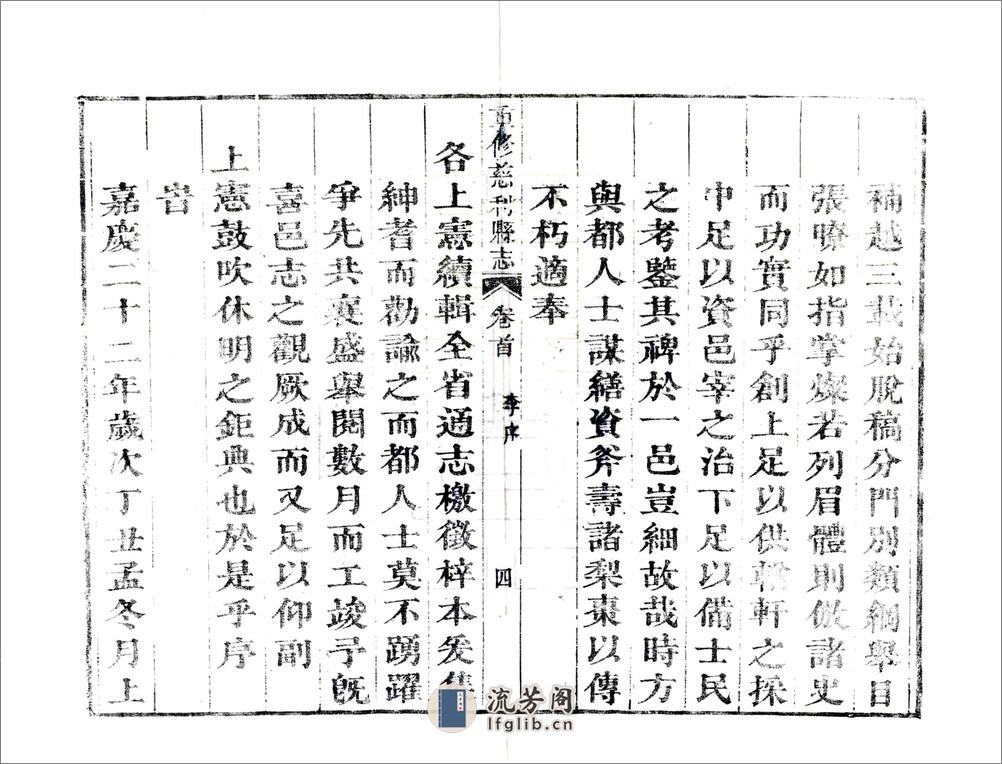 補越三載始脫稿分門別類綱舉目
張瞭如指掌燦若列眉體則倣諸史
而功實同乎創上足以供輶軒之採
中足以資邑宰之治下足以備士民
之考鑒其裨於一邑豈細故哉時方
與都人士謀繕資斧壽諸梨棗以傳
不朽適奉
重修慈利縣志 卷首 李序 四
各上憲續輯全省通志檄徵梓本爰集
紳耆而勸諭之而都人士莫不踴躍
爭先共襄盛舉閱數月而工竣予旣
喜邑志之觀厥成而又足以仰副
上憲鼓吹休明之鉅典也於是乎序
旹
嘉慶二十二年歲次丁丑孟冬月上
流芳阁
lfglib.cn